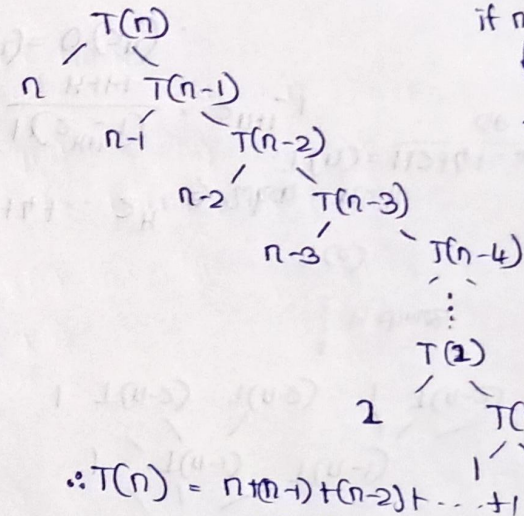 T(n)
if n
n T(n-1)
n-1 T(n-2)
n-2 T(n-3)
n-3 T(n-4)
⋮
T(2)
2 T(
1
∴ T(n) = n+(n-1)+(n-2)+ ... +1